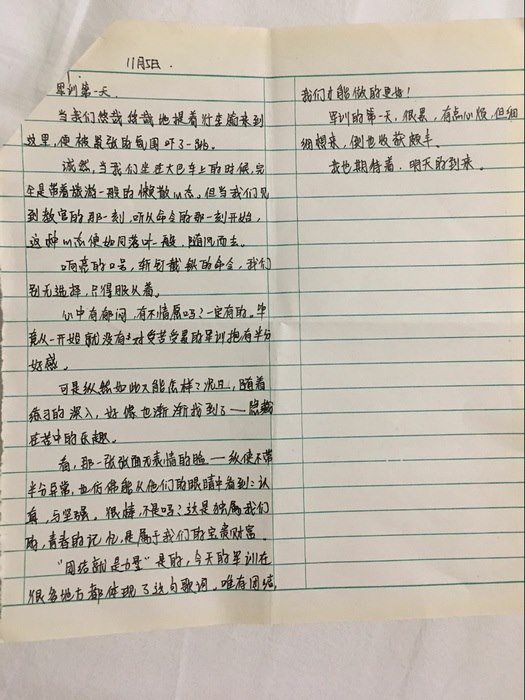 11月5日.
军训第一天.
当我们悠哉悠哉地提着行李箱来到
这里,便被紧张的氛围吓了一跳。
诚然,当我们坐在大巴车上的时候,完
全是带着旅游一般的懒散心态。但当我们见
到教官的那一刻,听从命令的那一刻开始,
这种心态便如同落叶一般,随风而去。
响亮的口号,斩钉截铁的命令,我们
别无选择,只得服从着。
心中有郁闷,有不情愿吗?一定有的。毕
竟从一开始就没有对受苦受累的军训抱有半分
好感。
可是纵然如此又能怎样?况且,随着
练习的深入,好像也渐渐找到了——隐藏
在苦中的乐趣。
看,那一张张面无表情的脸——纵使不带
半分异常,也仿佛能从他们的眼睛中看到:认
真,与坚强。很棒,不是吗?这是独属我们
的,青春的记忆,是属于我们的宝贵财富.
"团结就是力量"是的,今天的军训在
很多地方都体现了这句歌词。唯有团结,
我们才能做的更好!
军训的第一天,很累,有点心烦,但细
细想来,倒也收获颇丰.
我也期待着,明天的到来。